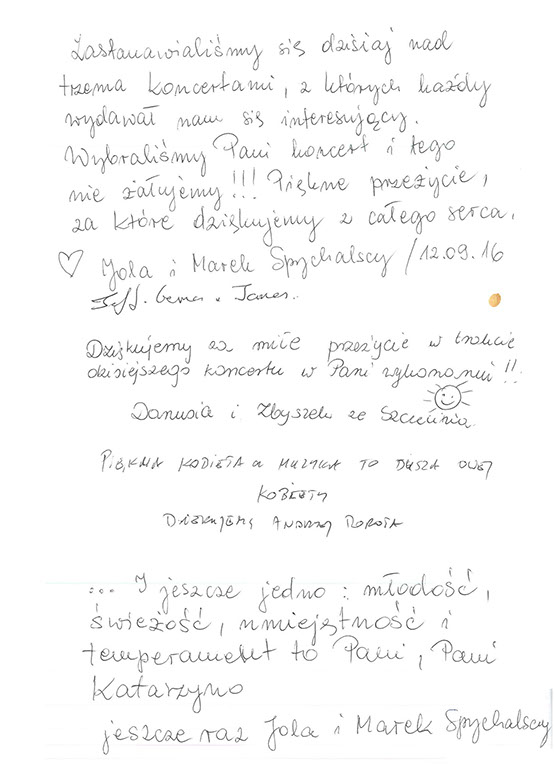 Zastanawialiśmy się dzisiaj nad
trzema koncertami, z których każdy
wydawał nam się interesujący.
Wybraliśmy Pani koncert i tego
nie żałujemy!!! Piękne przeżycie,
za które dziękujemy z całego serca.
♡ Jola i Marek Spychalscy / 12.09.16
Dziękujemy za miłe przeżycie w trakcie
dzisiejszego koncertu w Pani wykonaniu!!
Danusia i Zbyszek ze Szczecinia
PIĘKNA KOBIETA a MUZYKA TO DUSZA OWEJ
KOBIETY
DZIĘKUJEMY ANDRZEJ DOROTA
... I jeszcze jedno: młodość,
świeżość, umiejętność i
temperament to Pani, Pani
Katarzyno
jeszcze raz Jola i Marek Spychalscy